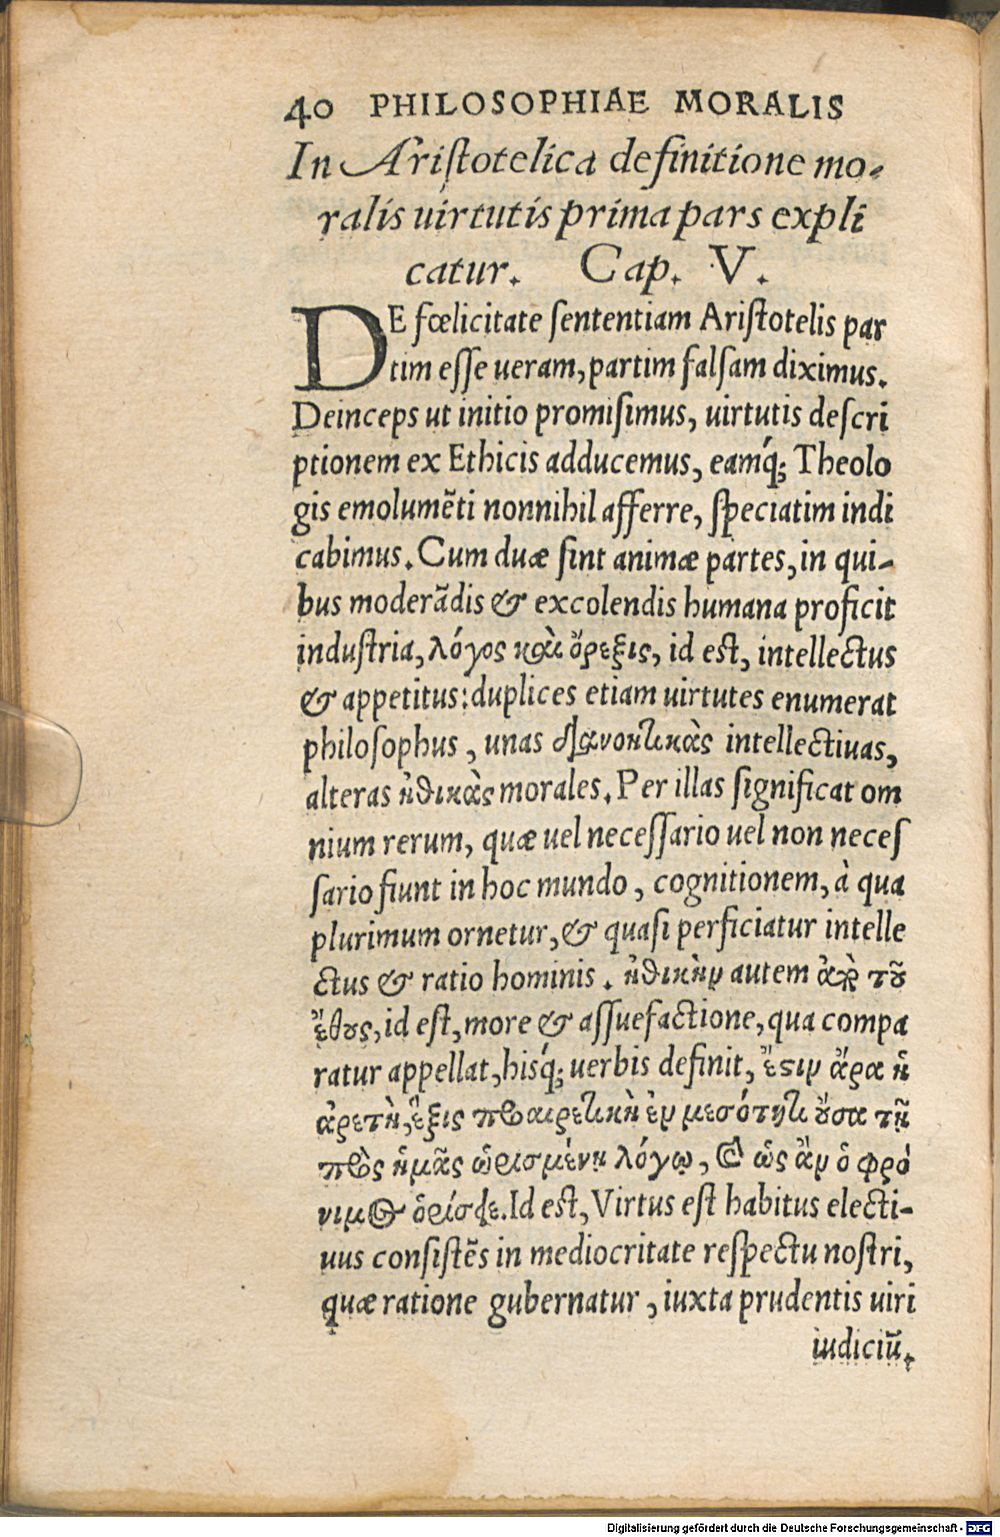 40 PHILOSOPHIAE MORALIS
In Aristotelica definitione mo-
ralis uirtutis prima pars expli
catur. Cap. V.
DE fœlicitate sententiam Aristotelis par
tim esse ueram, partim falsam diximus.
Deinceps ut initio promisimus, uirtutis descri
ptionem ex Ethicis adducemus, eamq́; Theolo
gis emolumẽti nonnihil afferre, speciatim indi
cabimus. Cum duæ sint animæ partes, in qui-
bus moderãdis & excolendis humana proficit
industria, λόγος καὶ ὄρεξις, id est, intellectus
& appetitus: duplices etiam uirtutes enumerat
philosophus, unas διανοητικὰς intellectiuas,
alteras ἠθικὰς morales. Per illas significat om
nium rerum, quæ uel necessario uel non neces
sario fiunt in hoc mundo, cognitionem, à qua
plurimum ornetur, & quasi perficiatur intelle
ctus & ratio hominis. ἠθικὴν autem ἀπὸ τοῦ
ἔθους, id est, more & assuefactione, qua compa
ratur appellat, hisq́; uerbis definit, ἔστιν ἄρα ἡ
ἀρετὴ, ἕξις προαιρετικὴ ἐν μεσότητι οὖσα τῇ
πρὸς ἡμᾶς ὡρισμένη λόγῳ, καὶ ὡς ἂν ὁ φρό
νιμος ὁρίσειε. Id est, Virtus est habitus electi-
uus consistẽs in mediocritate respectu nostri,
quæ ratione gubernatur, iuxta prudentis uiri
iudiciũ.
Digitalisierung gefördert durch die Deutsche Forschungsgemeinschaft - DFG